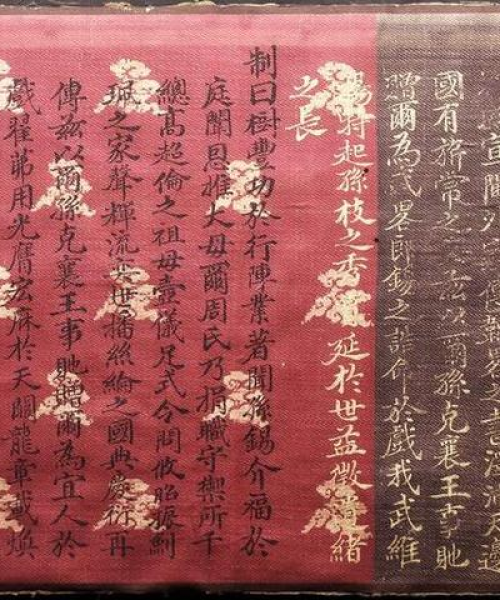 國有旂常之典茲以爾孫克襄王事貤
贈爾為武畧郎錫之誥命於戲我武維
揚特起孫枝之秀賞延於世益徵遺緒
之長
制曰樹豐功於行陣業著聞孫錫介福於
庭闈恩推大母爾周氏乃捐職守禦所千
總高超倫之祖母壼儀足式令問攸昭振劍
珮之家聲輝流奕世播絲綸之國典慶衍再
傳茲以爾孫克襄王事貤贈爾為宜人於
戲翟茀用光膺宏庥於天闕龍章載煥